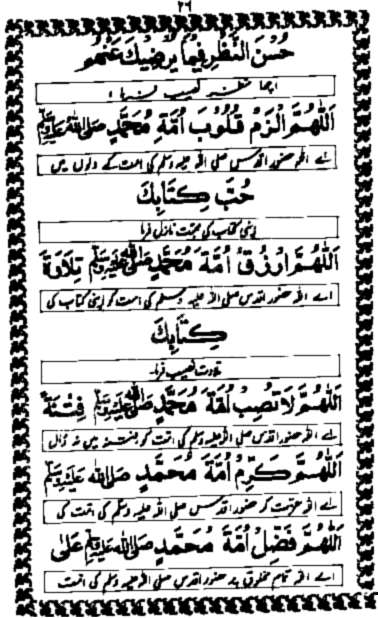 ٢٦
حُسْنَ النَّظَرِ فِيمَا يُرْضِيكَ عَنْهُمْ
اچھا
اَللّٰهُمَّ الْزَمْ قُلُوْبَ اُمَّةِ مُحَمَّدٍ صَلَّى اللهُ عَلَيْهِ وَسَلَّمَ
اے اللہ حضور اقدس صلی اللہ علیہ وسلم کی امت کے دلوں میں
حُبَّ كِتَابِكَ
اپنی کتاب کی محبت نازل فرما
اَللّٰهُمَّ ارْزُقْ اُمَّةَ مُحَمَّدٍ صَلَّى اللهُ عَلَيْهِ وَسَلَّمَ تِلَاوَةَ
اے اللہ حضور اقدس صلی اللہ علیہ وسلم کی امت کو اپنی کتاب کی
كِتَابِكَ
تلاوت نصیب فرما
اَللّٰهُمَّ لَا تُصِبْ اُمَّةَ مُحَمَّدٍ صَلَّى اللهُ عَلَيْهِ وَسَلَّمَ فِتْنَةً
اے اللہ حضور اقدس صلی اللہ علیہ وسلم کی امت کو فتنہ میں نہ ڈال
اَللّٰهُمَّ كَرِّمْ اُمَّةَ مُحَمَّدٍ صَلَّى اللهُ عَلَيْهِ وَسَلَّمَ
اے اللہ عزت کر حضور اقدس صلی اللہ علیہ وسلم کی امت کی
اَللّٰهُمَّ فَضِّلْ اُمَّةَ مُحَمَّدٍ صَلَّى اللهُ عَلَيْهِ وَسَلَّمَ عَلٰى
اے اللہ تمام مخلوق پر حضور اقدس صلی اللہ علیہ وسلم کی امت